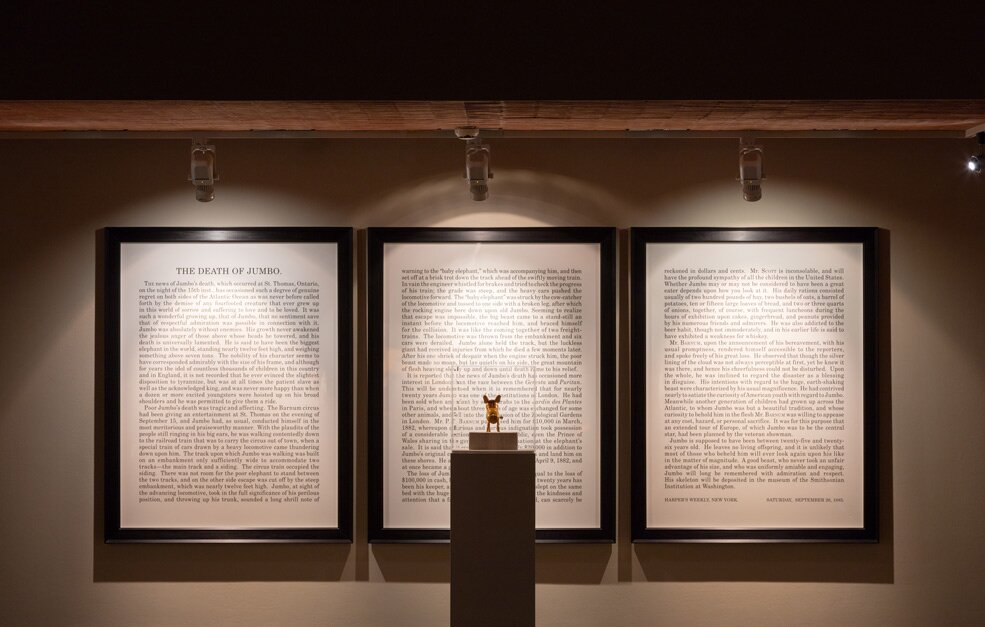 THE DEATH OF JUMBO.
THE news of Jumbo's death, which occurred at St. Thomas, Ontario,
on the night of the 15th inst., has occasioned such a degree of genuine
regret on both sides of the Atlantic Ocean as was never before called
forth by the demise of any fourfooted creature that ever grew up
in this world of sorrow and suffering to love and to be loved. It was
such a wonderful growing up, that of Jumbo, that no sentiment save
that of respectful admiration was possible in connection with it.
Jumbo was absolutely without enemies. His growth never awakened
the jealous anger of those above whose heads he towered, and his
death is universally lamented. He is said to have been the biggest
elephant in the world, standing nearly twelve feet high, and weighing
something above seven tons. The nobility of his character seems to
have corresponded admirably with the size of his frame, and although
for years the idol of countless thousands of children in this country
and in England, it is not recorded that he ever evinced the slightest
disposition to tyrannize, but was at all times the patient slave as
well as the acknowledged king, and was never more happy than when
a dozen or more excited youngsters were hoisted up on his broad
shoulders and he was permitted to give them a ride.
Poor Jumbo's death was tragic and affecting. The Barnum circus
had been giving an entertainment at St. Thomas on the evening of
September 15, and Jumbo had, as usual, conducted himself in the
most meritorious and praiseworthy manner. With the plaudits of the
people still ringing in his big ears, he was walking contentedly down
to the railroad train that was to carry the circus out of town, when a
special train of cars drawn by a heavy locomotive came thundering
down upon him. The track upon which Jumbo was walking was built
on an embankment only sufficiently wide to accommodate two
tracks—the main track and a siding. The circus train occupied the
siding. There was not room for the poor elephant to stand between
the two tracks, and on the other side escape was cut off by the steep
embankment, which was nearly twelve feet high. Jumbo, at sight of
the advancing locomotive, took in the full significance of his perilous
position, and throwing up his trunk, sounded a long shrill note of
warning to the "baby elephant," which was accompanying him, and then
set off at a brisk trot down the track ahead of the swiftly moving train.
In vain the engineer whistled for brakes and tried to check the progress
of his train; the grade was steep, and the heavy cars pushed the
locomotive forward. The "baby elephant" was struck by the cow-catcher
of the locomotive and tossed to one side with a broken leg, after which
the rocking engine bore down upon old Jumbo. Seeming to realize
that escape was impossible, the big beast came to a stand-still an
instant before the locomotive reached him, and braced himself
for the collision. It was like the coming together of two freight-
trains. The locomotive was thrown from the embankment and six
cars were derailed. Jumbo alone held the track, but the luckless
giant had received injuries from which he died a few moments later.
After his one shriek of despair when the engine struck him, the poor
beast made no moan, but lay quietly on his side, the great mountain
of flesh heaving slowly up and down until death came to his relief.
It is reported that the news of Jumbo's death has occasioned more
interest in London than the race between the Genesta and Puritan.
This will be understood when it is remembered that for nearly
twenty years Jumbo was one institutions in London. He had
been sold when an to the Jardin des Plantes
in Paris, and when about three of age was exchanged for some
other animals, and fell into the possession of the Zoological Gardens
in London. Mr. P. BARNUM purchased him for $10,000 in March,
1882, whereupon indignation took possession
of a considerable even the Prince of
Wales sharing in at the elephant's
sale. It is said in addition to
Jumbo's original and land him on
these shores. He April 9, 1882, and
at once became a
The loss of Jumbo equal to the loss of
$100,000 in cash, twenty years has
been his keeper, slept on the same
bed with the huge the kindness and
attention that a can scarcely be
reckoned in dollars and cents. Mr. SCOTT is inconsolable, and will
have the profound sympathy of all the children in the United States.
Whether Jumbo may or may not be considered to have been a great
eater depends upon how you look at it. His daily rations consisted
usually of two hundred pounds of hay, two bushels of oats, a barrel of
potatoes, ten or fifteen large loaves of bread, and two or three quarts
of onions, together, of course, with frequent luncheons during the
hours of exhibition upon cakes, gingerbread, and peanuts provided
by his numerous friends and admirers. He was also addicted to the
beer habit, though not immoderately, and in his earlier life is said to
have exhibited a weakness for whiskey.
Mr. BARNUM, upon the announcement of his bereavement, with his
usual promptness, rendered himself accessible to the reporters,
and spoke freely of his great loss. He observed that though the silver
lining of the cloud was not always perceptible at first, yet he knew it
was there, and hence his cheerfulness could not be disturbed. Upon
the whole, he was inclined to regard the disaster as a blessing
in disguise. His intentions with regard to the huge, earth-shaking
beast were characterized by his usual magnificence. He had contrived
nearly to satiate the curiosity of American youth with regard to Jumbo.
Meanwhile another generation of children had grown up across the
Atlantic, to whom Jumbo was but a beautiful tradition, and whose
curiosity to behold him in the flesh Mr. BARNUM was willing to appease
at any cost, hazard, or personal sacrifice. It was for this purpose that
an extended tour of Europe, of which Jumbo was to be the central
star, had been planned by the veteran showman.
Jumbo is supposed to have been between twenty-five and twenty-
six years old. He leaves no living offspring, and it is unlikely that
most of those who beheld him will ever look again upon his like
in the matter of magnitude. A good beast, who never took an unfair
advantage of his size, and who was uniformly amiable and engaging,
Jumbo will long be remembered with admiration and respect.
His skeleton will be deposited in the museum of the Smithsonian
Institution at Washington.
HARPER'S WEEKLY, NEW YORK. SATURDAY, SEPTEMBER 26, 1885.